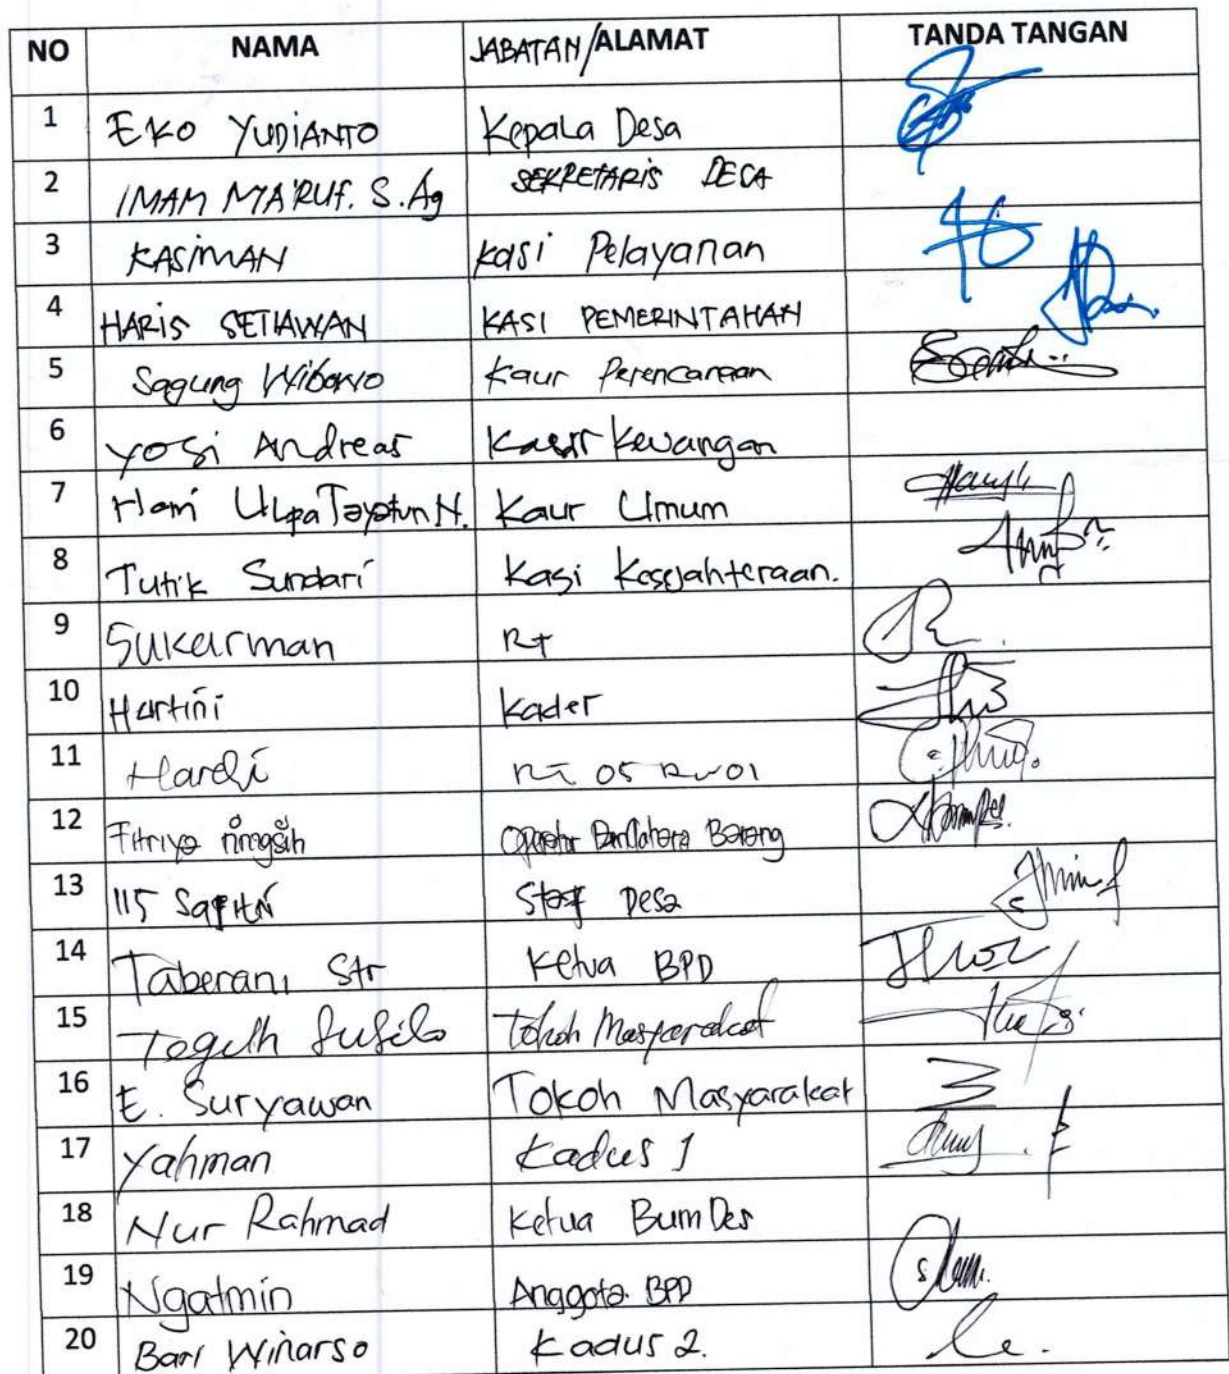 NO NAMA JABATAN/ALAMAT TANDA TANGAN
1 EKO YUDIANTO Kepala Desa
2 IMAM MA'RUF. S.Ag SEKRETARIS DESA
3 KASIMAN Kasi Pelayanan
4 HARIS SETIAWAN KASI PEMERINTAHAN
5 Sagung Wibowo Kaur Perencanaan
6 Yosi Andreas Kaur Keuangan
7 Kaur Umum
8 Tutik Sundari Kasi Kesejahteraan.
9 Sukarman RT
10 Hartini Kader
11 Hardi RT 05 RW 01
12 Fitriya Barang
13 Staf Desa
14 Taberani Str Ketua BPD
15 Teguh Susilo Tokoh Masyarakat
16 E. Suryawan Tokoh Masyarakat
17 Yahman Kadus 1
18 Nur Rahmad Ketua BumDes
19 Ngatmin Anggota BPD
20 Bari Winarso Kadus 2.